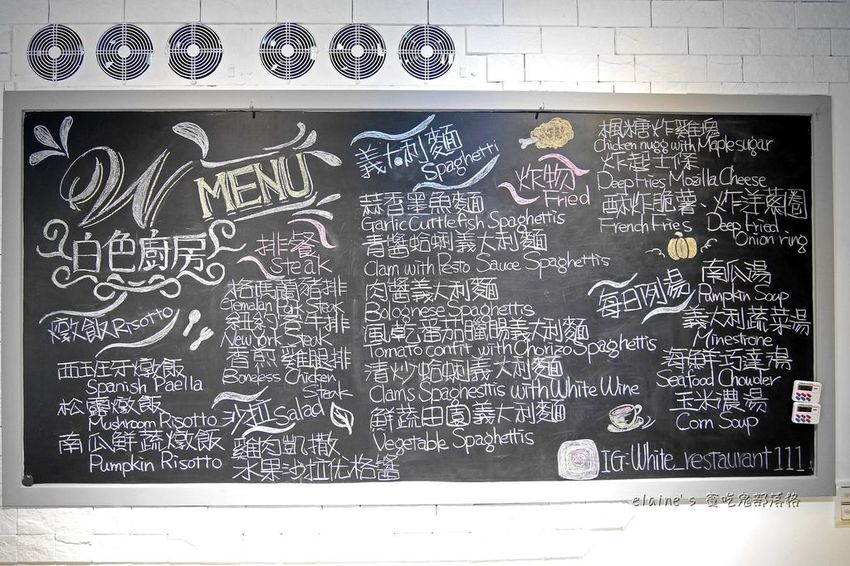 W MENU
白色廚房
燉飯 Risotto
西班牙燉飯
Spanish Paella
松露燉飯
Mushroom Risotto
南瓜鮮蔬燉飯
Pumpkin Risotto
排餐
Steak
格瑪蘭豬排
Gemalan Pork Steak
紐約客牛排
New York Steak
香煎雞腿排
Boneless Chicken
Steak
沙拉 Salad
雞肉凱撒
水果沙拉优格醬
義大利麵
Spaghetti
蒜香墨魚麵
Garlic Cuttlefish Spaghettis
青醬蛤蜊義大利麵
Clam with Pesto Sauce Spaghettis
肉醬義大利麵
Bolognese Spaghettis
風乾番茄臘腸義大利麵
Tomato confit with Chorizo Spaghettis
清炒蛤蜊義大利麵
Clams Spaghestis with White Wine
鮮蔬田園義大利麵
Vegetable Spaghettis
炸物
Fried
楓糖炸雞塊
Chicken nugg with Maple sugar
炸起士條
Deep fries Mozilla Cheese
酥炸脆薯、炸洋蔥圈
French Fries Deep Fried
Onion ring
每日例湯
南瓜湯
Pumpkin Soup
義大利蔬菜湯
Minestrone
海鮮巧達湯
Seafood Chowder
玉米濃湯
Corn Soup
IG:White_restaurant111
elaine's 貪吃鬼部落格